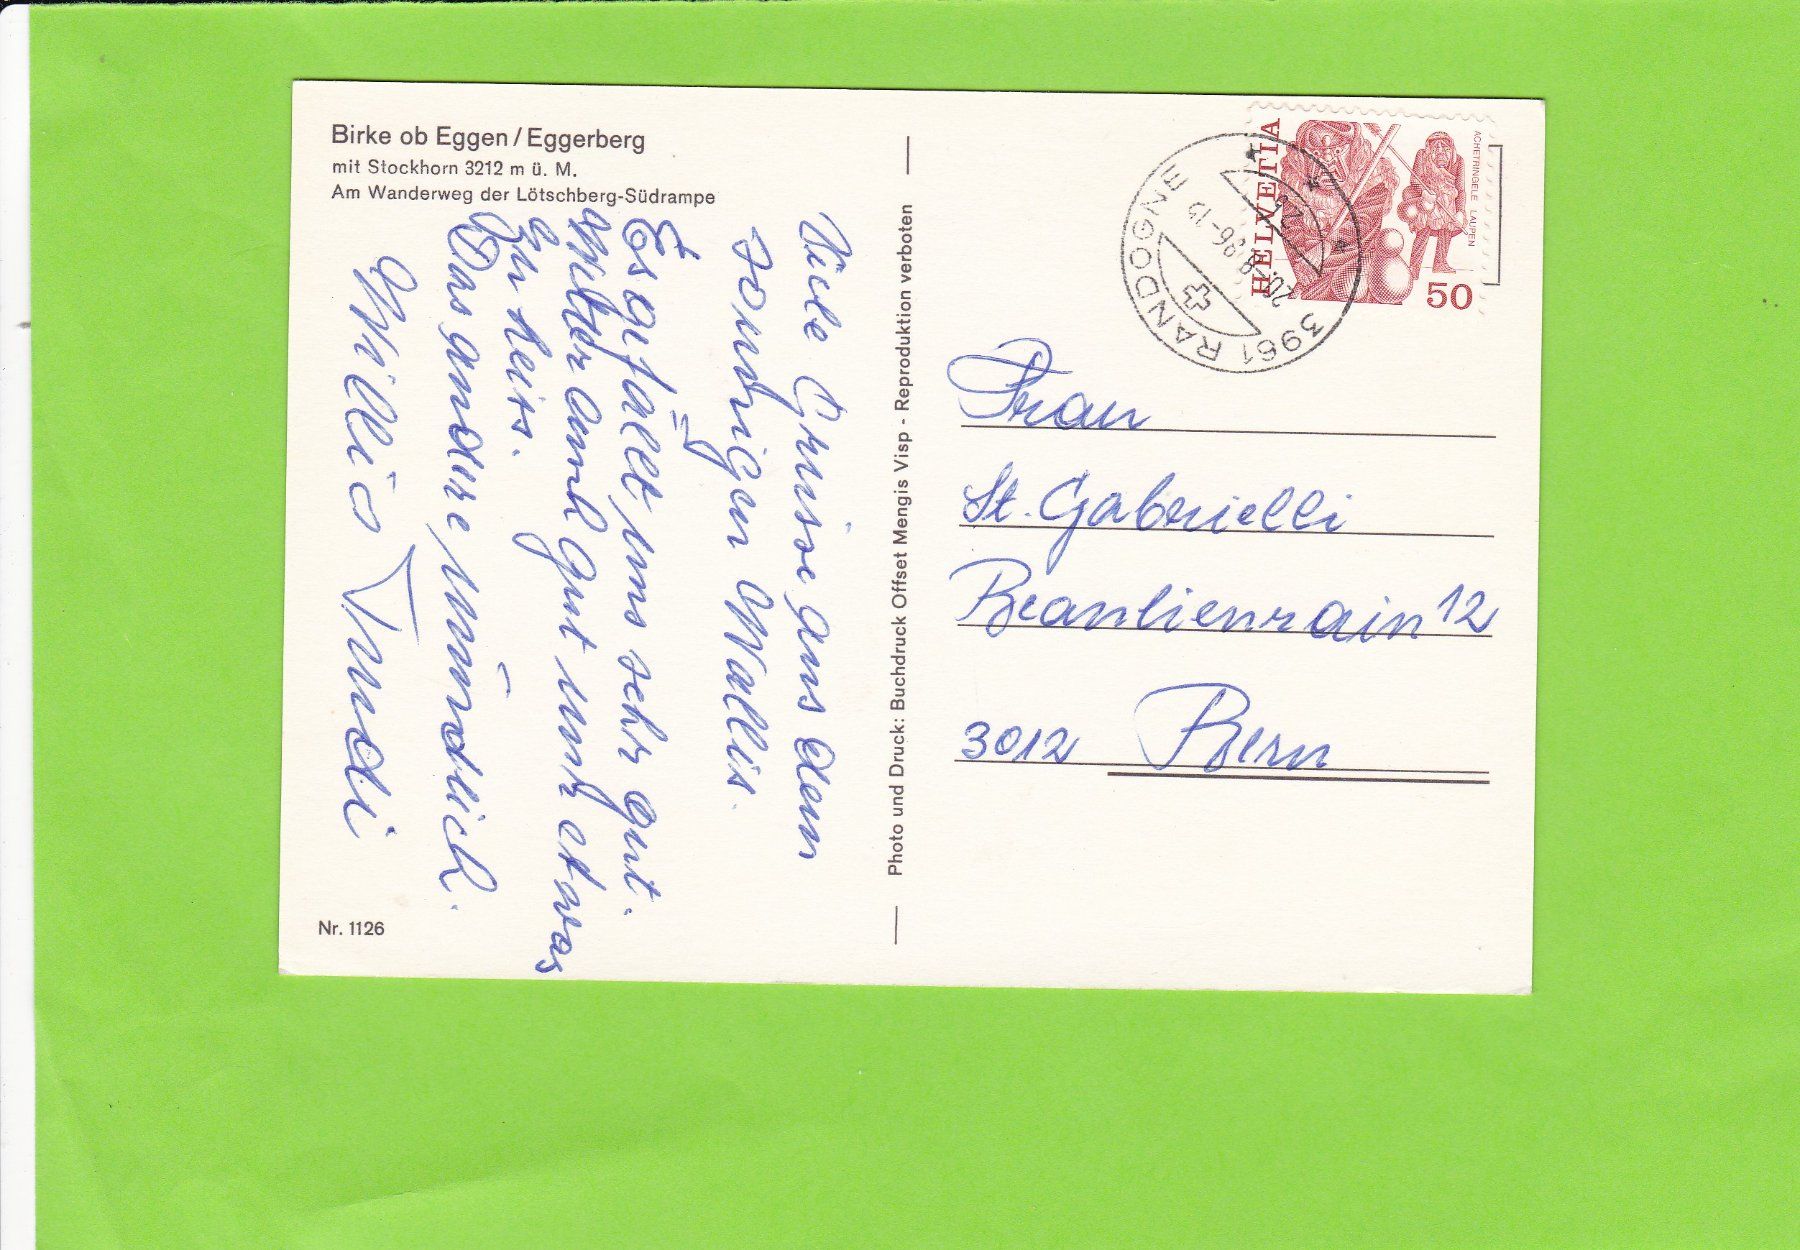 Birke ob Eggen / Eggerberg
mit Stockhorn 3212 m ü. M.
Am Wanderweg der Lötschberg-Südrampe
Viele Grüsse aus dem
sonnigen Wallis.
Es gefällt uns sehr gut.
Wetter auch gut und etwas
zu heiss.
Das andere mündlich.
Willi & Trudi
Nr. 1126
Photo und Druck: Buchdruck Offset Mengis Visp - Reproduktion verboten
3961 RANDOGNE
HELVETIA
ACHETRINGELE LAUPEN
50
Frau
St. Gabrielli
Beaulienrain 12
3012 Bern